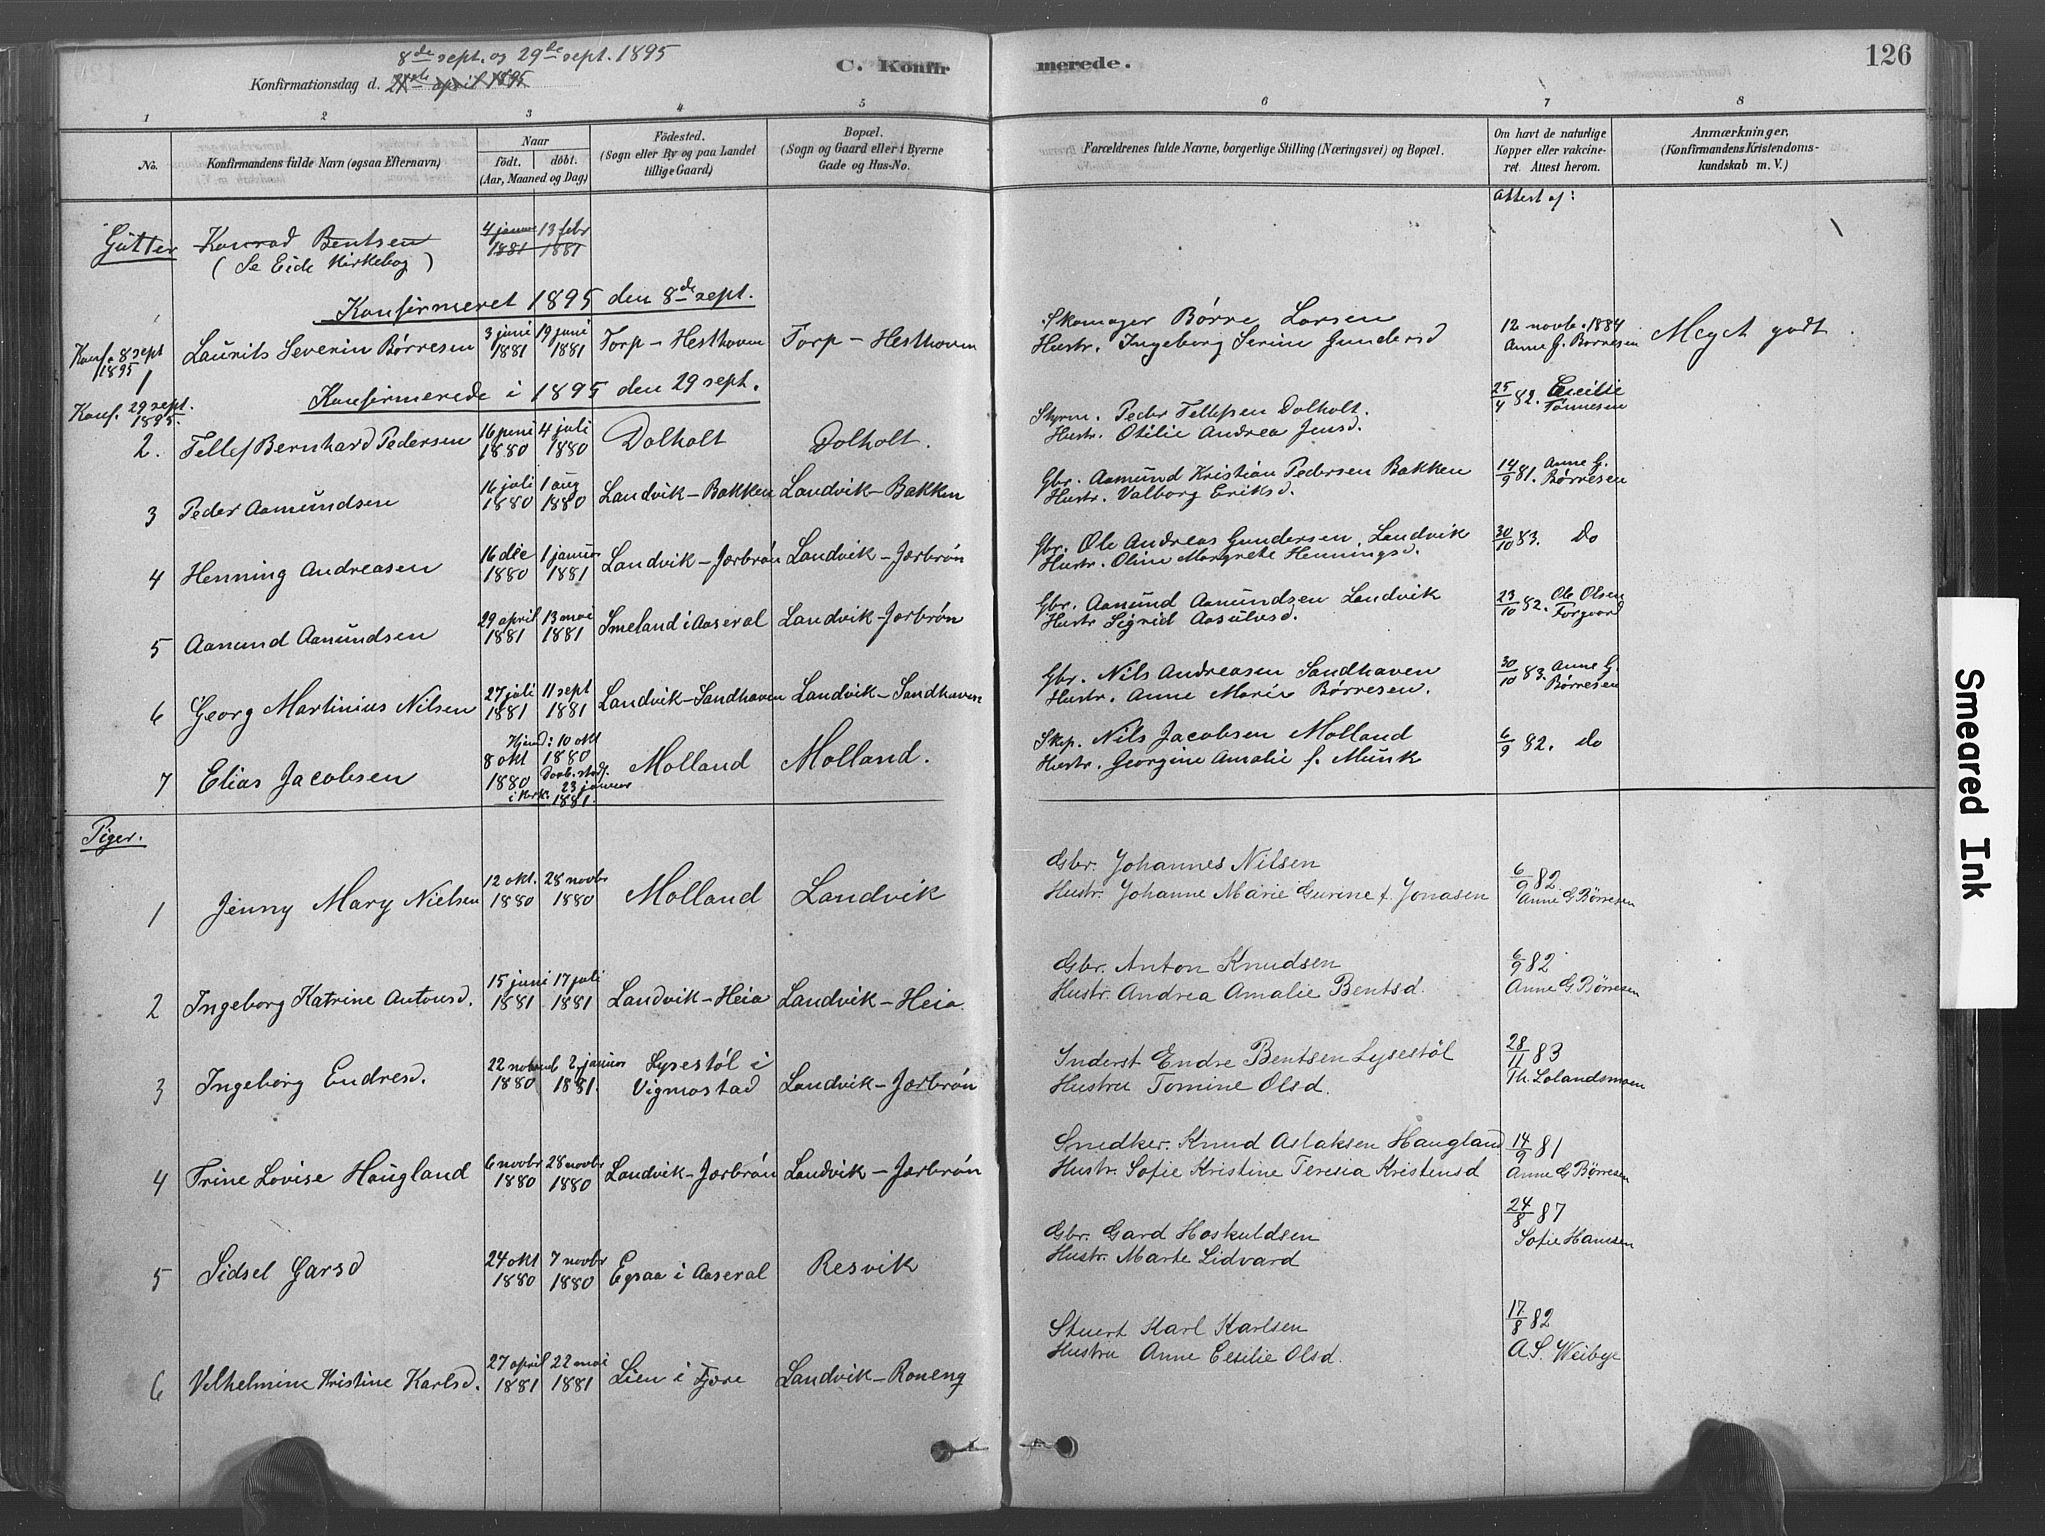 8de sept. og 29de sept. 1895
Konfirmationsdag d. 21de april 1895
C. Konfirmerede.
126
1 2 3 4 5 6 7 8
No.
Konfirmandens fulde Navn (ogsaa Efternavn)
Naar
födt. döbt.
(Aar, Maaned og Dag)
Födested.
(Sogn eller By og paa Landet
tillige Gaard)
Bopæl.
(Sogn og Gaard eller i Byerne
Gade og Hus-No.
Forældrenes fulde Navne, borgerlige Stilling (Næringsvei) og Bopæl.
Om havt de naturlige
Kopper eller vakcine-
ret. Attest herom.
Anmærkninger.
(Konfirmandens Kristendoms-
kundskab m. V.)
Attest af:
Gutter Konrad Bentsen 4 januar 1881 13 febr 1881
(Se Eide Kirkebog)
Konfirmeret 1895 den 8de sept.
Konf. 8 sept 1895
1 Laurits Severin Börresen 3 juni 1881 19 juni 1881 Torp - Hesthoven Torp - Hesthoven
Skomager Börre Larsen
Hustr. Ingeborg Serine Gundersd
12 novb. 1884
Anne G. Börresen
Meget godt.
Konfirmerede i 1895 den 29 sept.
Konf. 29 sept. 1895.
2. Tellef Bernhard Pedersen 16 juni 1880 4 juli 1880 Dolholt Dolholt.
Styrm. Peder Tellefsen Dolholt.
Hustr. Otilie Andrea Jensd.
25/4 82. Cecilie
Tönnesen
3 Peder Aamundsen 16 juli 1880 1 aug 1880 Landvik-Bakken Landvik-Bakken
Gbr. Aamund Kristian Pedersen Bakken
Hustr. Valborg Eriksd.
14/9 81. Anne G.
Börresen
4 Henning Andreasen 16 dec 1880 1 januar 1881 Landvik-Jorbrön Landvik-Jorbrön
Gbr. Ole Andreas Gundersen, Landvik
Hustr. Oline Margrete Henningsd.
30/10 83. Do
5 Aanund Aanundsen 29 april 1881 13 mai 1881 Smeland i Aaseral Landvik-Jorbrön
Gbr. Aanund Aanundsen Landvik
Hustr Sigrid Aasulvsd.
23/10 82. Ole Olsen
6 Georg Martinius Nilsen 27 juli 1881 11 sept 1881 Landvik-Sandhaven Landvik-Sandhaven
Gbr. Nils Andreasen Sandhaven
Hustr. Anne Marie Börresen.
30/10 83. Anne G.
Börresen
7 Elias Jacobsen 8 okt 1880 Hjemd: 10 okt 1880
Daab. stadf. i Kirk. 23 januar 1881.
Molland Molland.
Skip. Nils Jacobsen Molland
Hustr. Georgine Amalie f. Munk
6/9 82. Do
Piger.
1 Jenny Mary Nielsen 12 okt. 1880 28 novbr 1880 Molland Landvik
Gbr. Johannes Nilsen
Hustr. Johanne Marie Gurine f. Jonasen
6/9 82
Anne G Börresen
2 Ingeborg Katrine Antonsd. 15 juni 1881 17 juli 1881 Landvik-Heia Landvik-Heia
Gbr. Anton Knudsen
Hustr. Andrea Amalie Bentsd.
6/9 82
Anne G Börresen
3 Ingeborg Endresd. 22 novemb 1880 2 januar 1881. Lysestöl i
Vigmostad Landvik-Jorbrön
Inderst Endre Bentsen Lysestöl
Hustru Tomine Olsd.
28/11 83
Th. Lolandsmoen
4 Trine Lovise Haugland 6 novbr 1880 28 novbr 1880 Landvik-Jorbrön Landvik-Jorbrön
Snedker. Knud Aslaksen Haugland
Hustr. Sofie Kristine Teresia Kristensd
14/9 81
Anne G Börresen
5 Sidsel Garsd 24 okt 1880 7 novbr 1880 Egsaa i Aaseral Resvik
Gbr. Gard Hoskuldsen
Hustr. Marte Lidvard
24/8 87
Sofie Hansen
6 Vilhelmine Kristine Karlsd. 27 april 1881 22 mai 1881 Lien i Fjære Landvik-Roneng
Stuert Karl Karlsen
Hustru Anne Cesilie Olsd.
17/8 82
A.S. Weibye
Smeared Ink